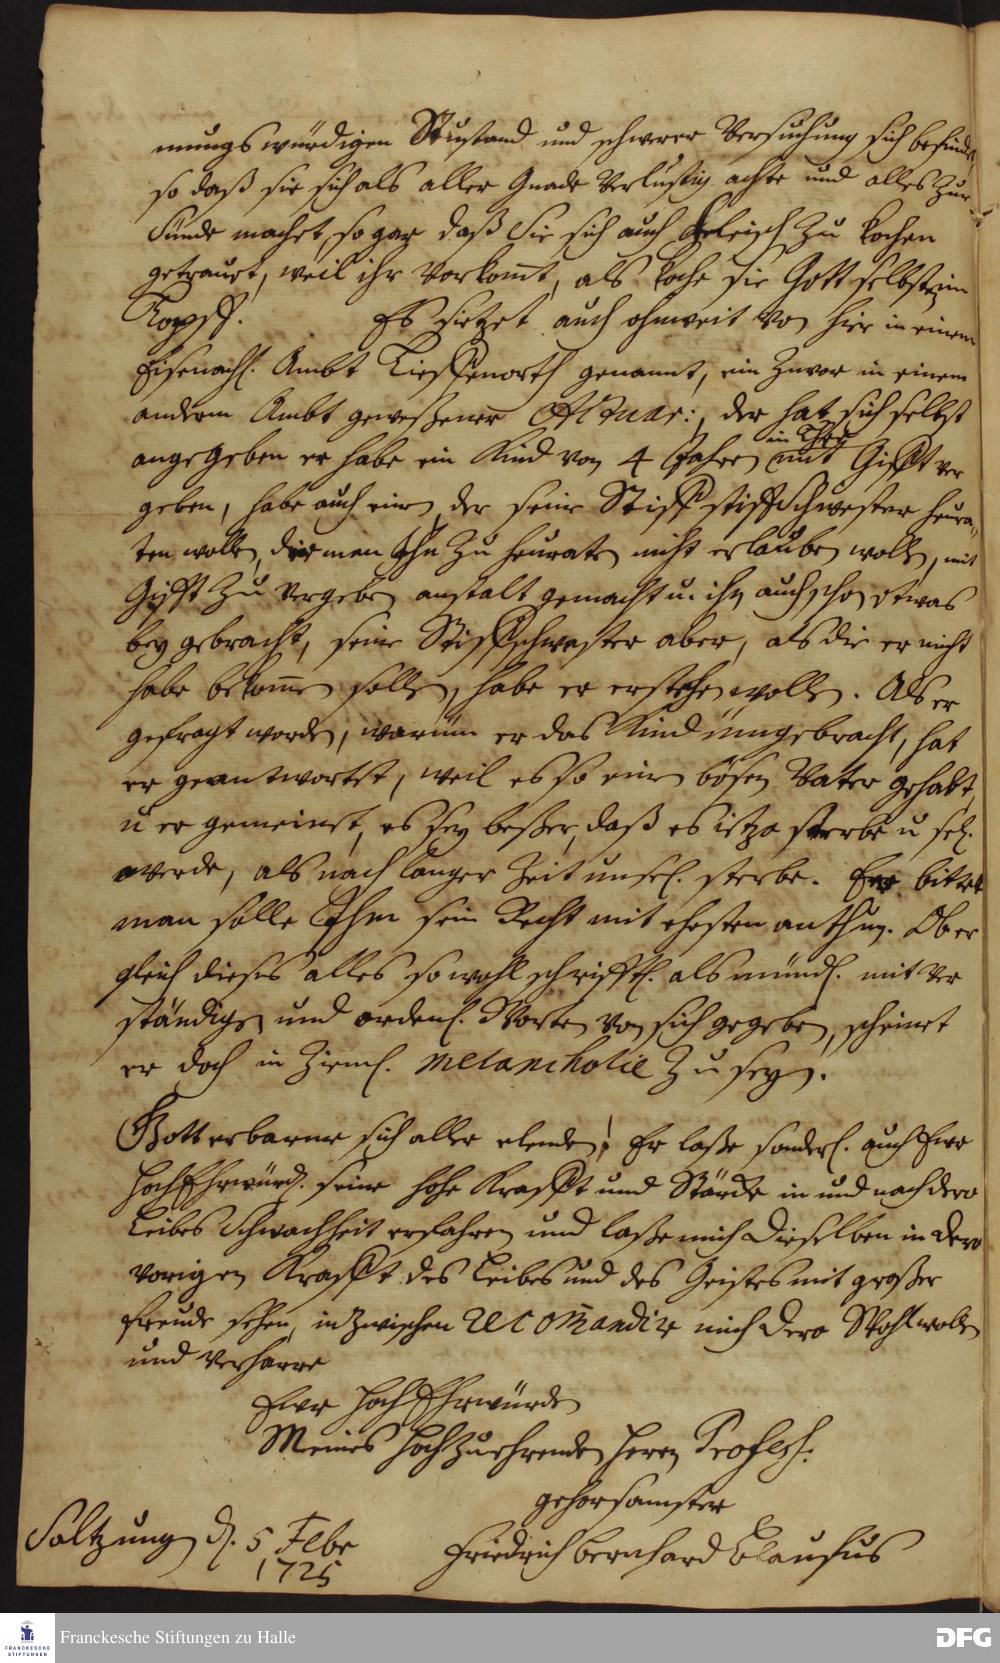 mungswürdigen Zustand und schwerer Versuchung sich befindet,
so daß sie sich als aller Gnade verlustig achte und alles zur
Sünde machet, sogar daß Sie sich auch Fleisch zu kochen
getrauet, weil ihr vorkomt, als koche sie Gott selbst im
Topff. Es sietzet auch ohnweit von hier in einem
Eisenachl. Ambt Tieffenorth genannt, ein zuvor in einem
andern Ambt geweßener Actuar:, der hat sich selbst
in Thee
angegeben er habe ein Kind von 4 Jahren mit Gifft ver
geben, habe auch einen, der seine Stieff stieffschwester heura„
ten wollen, die man Ihn zu heuraten nicht erlauben wollen, mit
Gifft zu vergeben anstalt gemacht u. ihn auch schon etwas
bey gebracht, seine Stieffschwester aber, als die er nicht
habe bekommen sollen, habe er erstechen wollen. Als er
gefragt worden, warum er das Kind umgebracht, hat
er geantwortet, weil es so einen bösen Vater gehabt,
u er gemeinet, es sey beßer, daß es ietzo sterbe u sel.
werde, als nach langer Zeit unsel. sterbe. Er bittet
man solle Ihm sein Recht mit ehesten anthun. Ob er
gleich dieses alles sowohl schrifftl. als mündl. mit ver
ständigen und ordenl. Worten von sich gegeben, scheinet
er doch in zieml. melancholie zu seyn.
Gott erbarme sich aller elenden! Er laße sonderl. auch Ewr
HochEhrwürd. seine hohe Krafft und Stärcke in und nach dero
Leibes Schwachheit erfahren und laße mich Dieselben in dero
vorigen Krafft des Leibes und des Geistes mit großer
freude sehen, inzwischen recommandire mich dero Wohlwollen
und verharre
Ewr HochEhrwürden
Meines Hochzuehrenden Herrn Profess.
gehorsamster
Saltzungen d. 5 Febr
1725
Friedrich Bernhard Clausius
Franckesche Stiftungen zu Halle
FRANCKESCHE
STIFTUNGEN
DFG